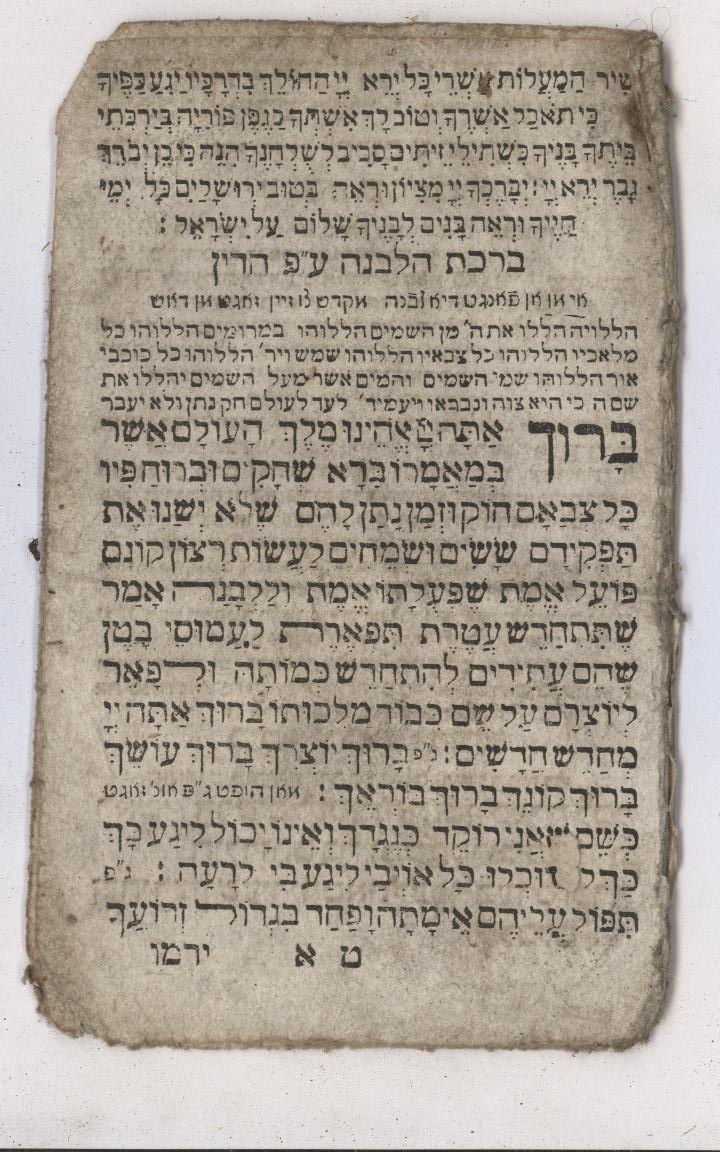 שִׁיר הַמַּעֲלוֹת אַשְׁרֵי כָּל יְרֵא יְיָ הַהוֹלֵךְ בִּדְרָכָיו יְגִעַ כַּפֶּיךָ
כִּי תֹאכֵל אַשְׁרֶיךָ וְטוֹב לָךְ אֶשְׁתְּךָ כְּגֶפֶן פּוֹרִיָּה בְּיַרְכְּתֵי
בֵיתֶךָ בָּנֶיךָ כִּשְׁתִילֵי זֵיתִים סָבִיב לְשֻׁלְחָנֶךָ הִנֵּה כִּי כֵן יְבֹרַךְ
גָּבֶר יְרֵא יְיָ : יְבָרֶכְךָ יְיָ מִצִּיּוֹן וּרְאֵה בְּטוּב יְרוּשָׁלַיִם כָּל יְמֵי
חַיֶּיךָ וּרְאֵה בָנִים לְבָנֶיךָ שָׁלוֹם עַל יִשְׂרָאֵל :
ברכת הלבנה ע״פ הדין
הללויה הללו את ה׳ מן השמים הללוהו במרומים הללוהו כל
מלאכיו הללוהו כל צבאיו הללוהו שמש וירי׳ הללוהו כל כוכבי
אור הללוהו שמי השמים והמים אשר מעל השמים יהללו את
שם ה׳ כי הוא צוה ונבראו ויעמיד׳ לעד לעולם חק נתן ולא יעבר
בָּרוּךְ אַתָּה יְיָ אֱלֹהֵינוּ מֶלֶךְ הָעוֹלָם אֲשֶׁר
בְּמַאֲמָרוֹ בָּרָא שְׁחָקִים וּבְרוּחַ פִּיו
כָּל צְבָאָם חוֹק וּזְמַן נָתַן לָהֶם שֶׁלֹּא יְשַׁנּוּ אֶת
תַּפְקִידָם שָׂשִׂים וּשְׂמֵחִים לַעֲשׂוֹת רְצוֹן קוֹנָם
פּוֹעֵל אֱמֶת שֶׁפְּעֻלָּתוֹ אֱמֶת וְלַלְּבָנָה אָמַר
שֶׁתִּתְחַדֵּשׁ עֲטֶרֶת תִּפְאֶרֶת לַעֲמוּסֵי בָטֶן
שֶׁהֵם עֲתִידִים לְהִתְחַדֵּשׁ כְּמוֹתָהּ וּלְפָאֵר
לְיוֹצְרָם עַל שֵׁם כְּבוֹד מַלְכוּתוֹ בָּרוּךְ אַתָּה יְיָ
מְחַדֵּשׁ חֳדָשִׁים : ג״פ בָּרוּךְ יוֹצְרֵךְ בָּרוּךְ עוֹשֵׂךְ
בָּרוּךְ קוֹנֵךְ בָּרוּךְ בּוֹרְאֵךְ : אונ הופט ג״פ אונ׳ זאגט
כְּשֵׁם שֶׁאֲנִי רוֹקֵד כְּנֶגְדֵּךְ וְאֵינוֹ יָכוֹל לִיגַּע בָּךְ
כַּךְ לֹא יוּכְלוּ כָּל אוֹיְבַי לִיגַּע בִּי לְרָעָה : ג״פ
תִּפּוֹל עֲלֵיהֶם אֵימָתָה וָפַחַד בִּגְדוֹל זְרוֹעֲךָ
ט א ידמו